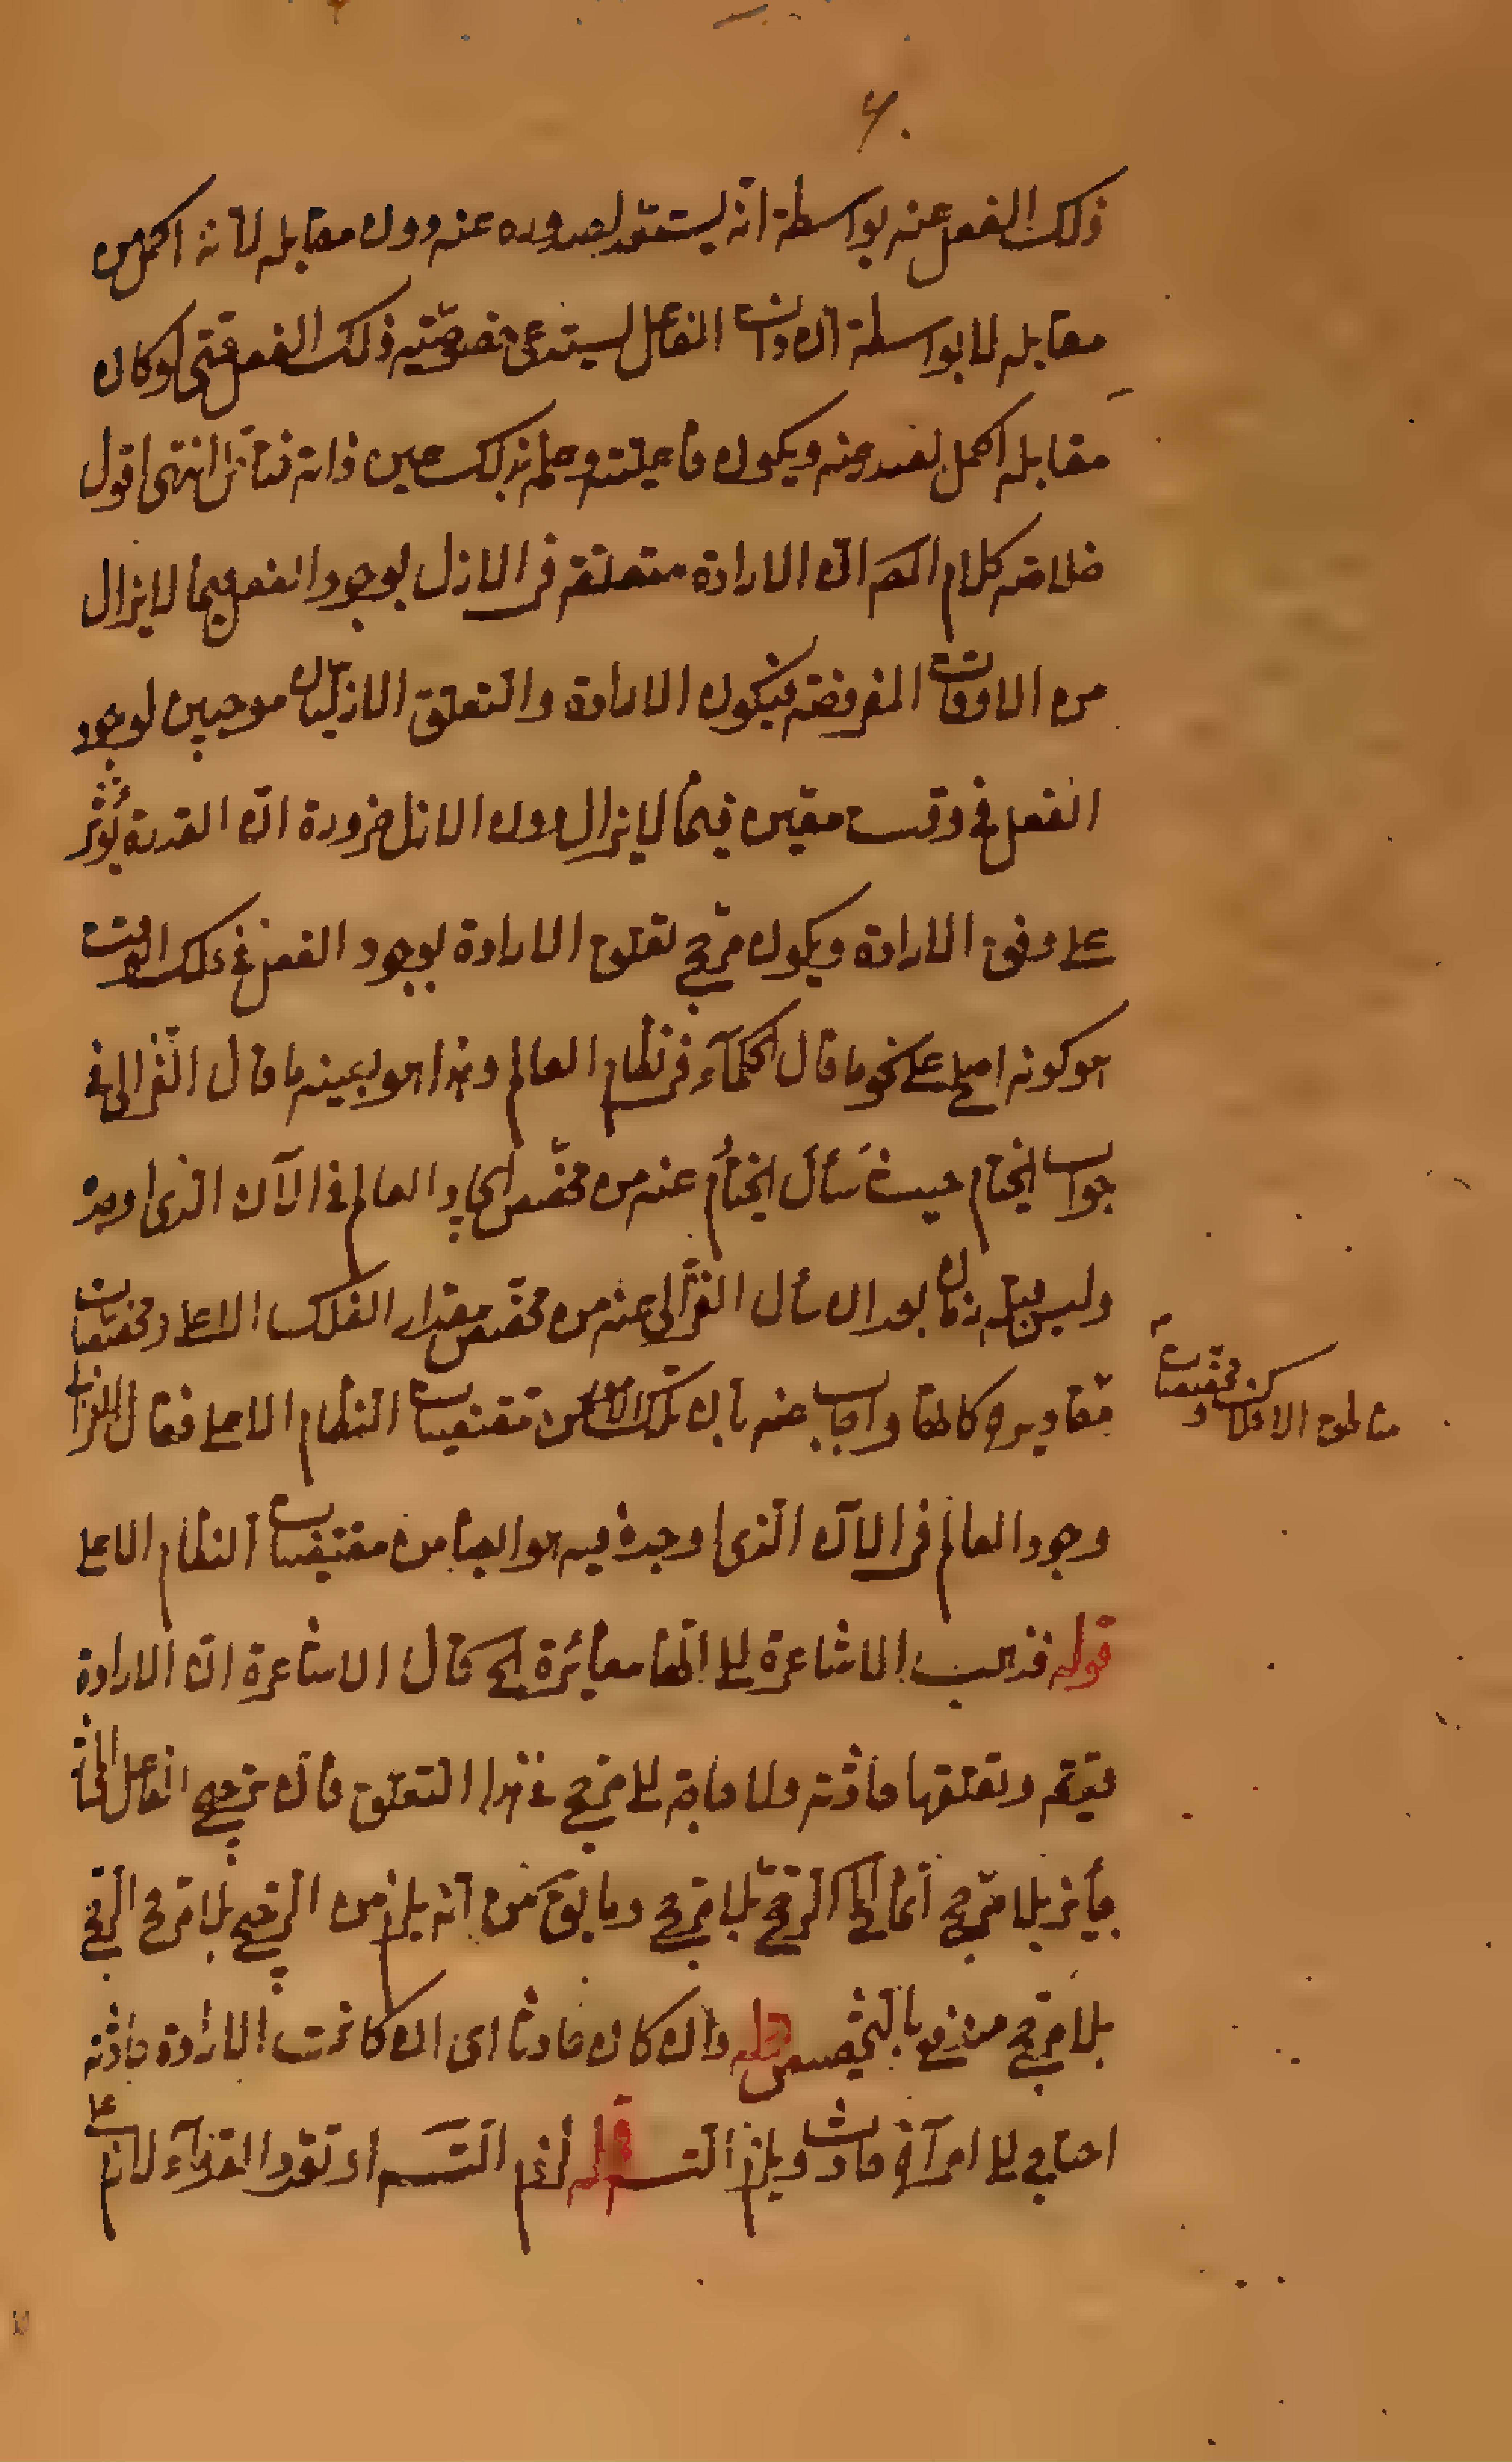 ٦٠
ذلك الفعل عنه بواسطة انّه يستعدّ لصدوره عنه دون مقابله لانّه اكمل من
مقابله لا بواسطة انّ ذات الفاعل يستدعى خصوصيّته ذلك الفعل حتى لو كان
مقابله اكمل لصدر عنه ويكون فاعليّته وعلمه بذلك عين ذاته فتأمّل انتهى اقول
خلاصة كلام المصـ انّ الارادة متعلّقة فى الازل بوجود الفعل فيما لايزال
من الاوقات المفروضة فيكون الارادة والتعلّق الازليّان موجبين لوجود
الفعل فى وقت معيّن فيما لايزال دون الازل ضرورة انّ القدرة تُؤثّر
على وفق الارادة ويكون مرجّح تعلّق الارادة بوجود الفعل فى ذلك الوقت
هو كونه اصلح على نحو ما قال الحكماء فى نظام العالم وهذا هو بعينه ما قال الغزّالى فى
جواب الخيّام حيث سأل الخيّام عنه من مخصّص ايجاد العالم فى الآن الذى اوجد
وليس قبله زمان بعد ان سأل الغزّالى عنه من مخصّص مقدار الفلك الاعلى ومخصّصات
مقاديره كالها واجاب عنه بان تلك الامور من مقتضيات النظام الاعلى فقال الغزالى
مناطق الافلاك ومخصّصات
وجود العالم فى الآن الذى وجد فيه هو ايضا من مقتضيات النظام الاعلى
قوله فذهب الاشاعرة الى انّها مغائرة الخ قال الاشاعرة انّ الارادة
قديمة وتعلّقها حادثة ولا حاجة الى مرجّح فى هذا التعلّق فانّ ترجيح الفاعل المختار
جائز بلا مرجّح انّما المح الترجّح بلا مرجّح وما يقـ من انّه يلزم من الترجيح بلا مرجّح الترجّح
بلا مرجّح مندفع بالتخصيص قوله وان كان حادثا اى ان كانت الارادة حادثة
احتاج الى امر آخر حادث ويلزم التسـ قوله لزم التسـ او تعدّد القدماء لانّه على